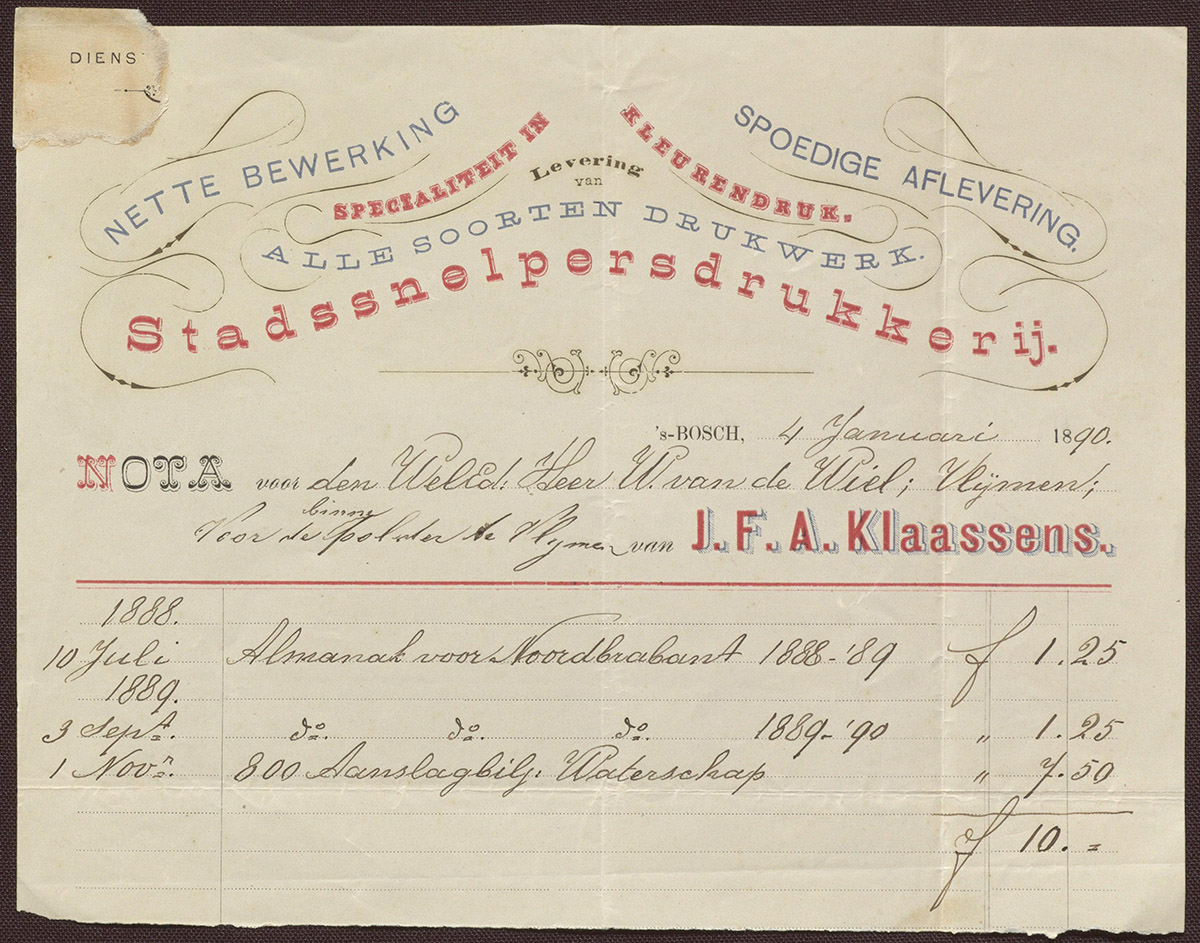 DIENS
NETTE BEWERKING
SPECIALITEIT IN KLEURENDRUK.
SPOEDIGE AFLEVERING.
Levering
van
ALLE SOORTEN DRUKWERK.
Stadssnelpersdrukkerij.
's-BOSCH, 4 Januari 1890.
NOTA voor den WelEd: Heer W. van de Wiel; Vlijmen;
binne
Voor de polder te Vlijmen van J. F. A. Klaassens.
1888.
10 Juli Almanak voor Noordbrabant 1888-'89 f 1.25
1889.
3 Sept. do. do. do. 1889-'90 " 1.25
1 Novr. 800 Aanslagbilj: Waterschap " 7.50
f 10.=